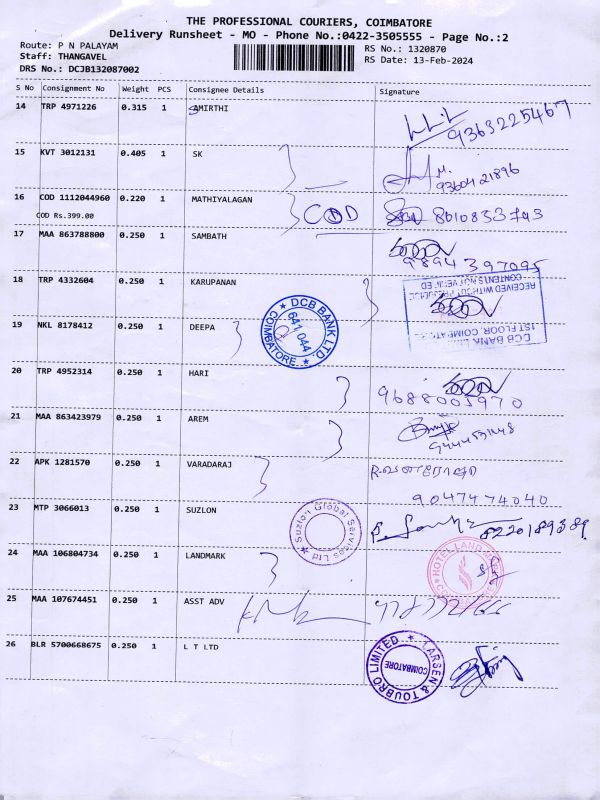 THE PROFESSIONAL COURIERS, COIMBATORE
Delivery Runsheet - MO - Phone No.:0422-3505555 - Page No.:2
Route: P N PALAYAM
RS No.: 1320870
Staff: THANGAVEL
RS Date: 13-Feb-2024
DRS No.: DCJB132087002
S No Consignment No Weight PCS Consignee Details Signature
14 TRP 4971226 0.315 1 AMIRTHI
9363225467
15 KVT 3012131 0.405 1 SK
9360421896
16 COD 1112044960 0.220 1 MATHIYALAGAN COD 8010833743
COD Rs.399.00
17 MAA 863788800 0.250 1 SAMBATH
9894397095
18 TRP 4332604 0.250 1 KARUPANAN
DCB BANK LTD. COIMBATORE 641 044
DCB BANK
1ST FLOOR, COIMBATORE
RECEIVED WITHOUT PREJUDICE
CONTENTS NOT VERIFIED
19 NKL 8178412 0.250 1 DEEPA
20 TRP 4952314 0.250 1 HARI
9688005970
21 MAA 863423979 0.250 1 AREM
22 APK 1281570 0.250 1 VARADARAJ
9047474040
23 MTP 3066013 0.250 1 SUZLON
Suzlon Global Services Ltd
8220189389
24 MAA 106804734 0.250 1 LANDMARK
HOTEL LAND
25 MAA 107674451 0.250 1 ASST ADV
26 BLR 5700668675 0.250 1 L T LTD
LARSEN & TOUBRO LIMITED
COIMBATORE